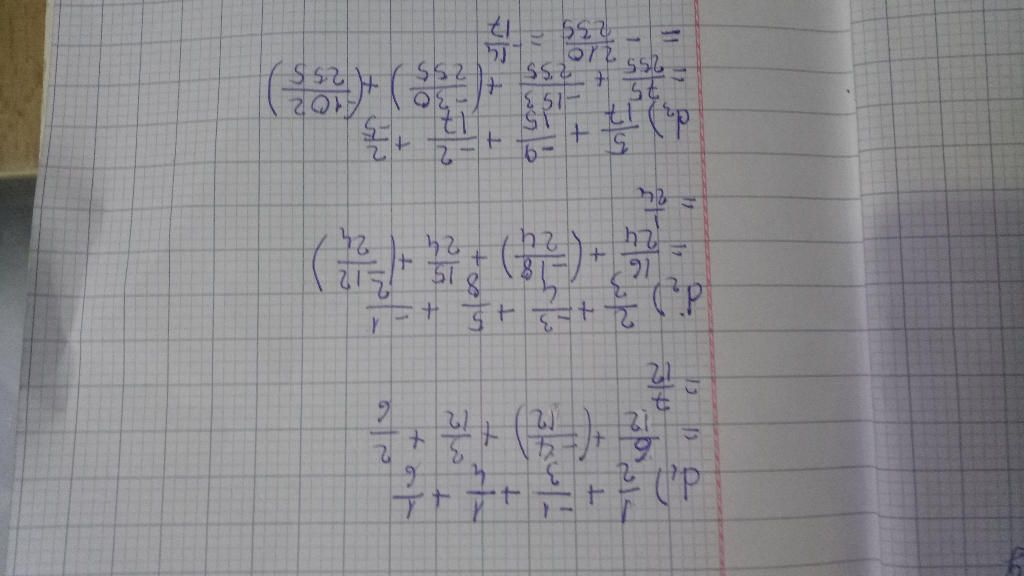 d₁) 1/2 + -1/3 + 1/4 + 1/6
= 6/12 + (-4/12) + 3/12 + 2/6
= 7/12
d₂) 2/3 + -3/4 + 5/8 + -1/2
= 16/24 + (-18/24) + 15/24 + (-12/24)
= 1/24
d₃) 5/17 + -9/15 + -2/17 + 2/-5
= 75/255 + -153/255 + (-30/255) + (102/255)
= - 210/255 = -14/17